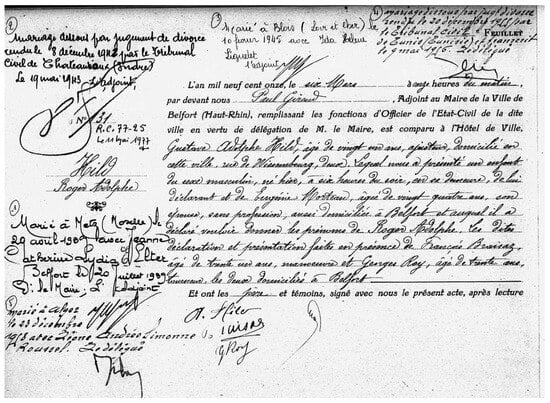 ②
Mariage dissout par jugement de divorce
rendu le 8 décembre 1942 par le Tribunal
Civil de Chateauroux (Indre)
Le 19 mai 1943 L'adjoint,
③
Marié à Blois (Loir et Cher) le
10 février 1945 avec
L'adjoint
④
mariage dissous par jugt divorce
rendu le 20 décembre 1955 par
le Tribunal Civil
de Tunis (Tunisie)
9 mai 1956
FEUILLET
N° 131
R.C. 77-25
Le 11 mai 1977
Hild
Roger Adolphe
①
Marié à Metz (Moselle) le
29 avril 19 avec Jeanne
Catherine Lydia Elter
Belfort le 20 juillet 1939
P. le Maire; L'adjoint
⑤
marié à
le 23 décembre
19 avec Andrée Simonne
Roussel. Le délégué
L'an mil neuf cent onze, le six Mars à onze heures du matin
par devant nous Paul Giraud, Adjoint au Maire de la Ville de
Belfort (Haut-Rhin), remplissant les fonctions d'Officier de l'Etat-Civil de la dite
ville en vertu de délégation de M. le Maire, est comparu à l'Hôtel de Ville,
Gustave Adolphe Hild, âgé de vingt six ans, ajusteur, domicilié en
cette ville rue de Wissembourg, deux. Lequel nous a présenté un enfant
du sexe masculin, né hier, à six heures du soir, en sa demeure, de lui
déclarant et de Eugénie Morteau, âgée de vingt quatre ans, son
épouse, sans profession, aussi domiciliée à Belfort et auquel il a
déclaré vouloir donner les prénoms de Roger Adolphe. Les dites
déclaration et présentation faites en présence de François
âgé de trente un ans, manoeuvre et Georges Roy, âgé de trente ans,
tourneur, les deux domiciliés à Belfort
Et ont les père et témoins, signé avec nous le présent acte, après lecture
A. Hild
G Roy